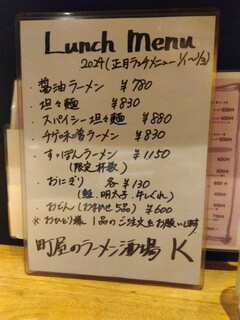 Lunch Menu
2024(正月ランチメニュー 1/1~1/3)
・醤油ラーメン ¥780
・坦々麺 ¥830
・スパイシー坦々麺 ¥880
・チゲ味噌ラーメン ¥830
・すっぽんラーメン ¥1150
(限定杯数)
・おにぎり 各¥130
(鮭、明太子、牛しぐれ)
・おでん(おまかせ5品) ¥600
※おひとり様 1品のご注文をお願いします
町屋のラーメン酒場 K